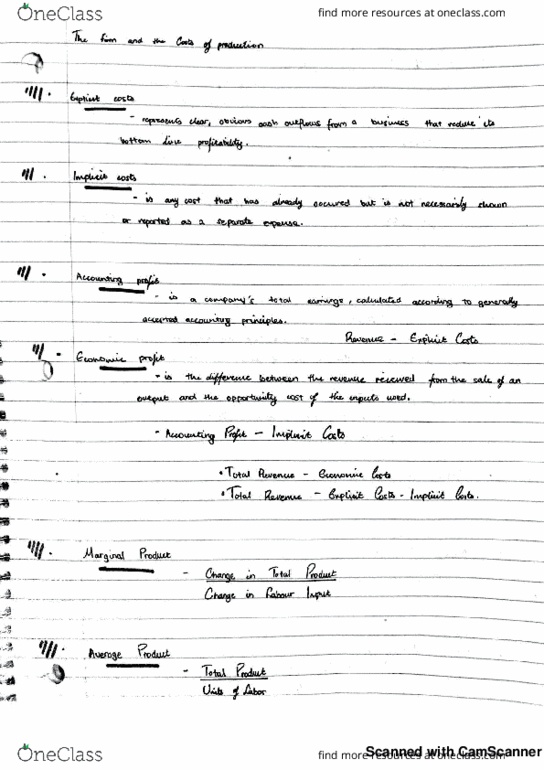 OneClass
find more resources at oneclass.com
The firm and the Costs of production
Explicit costs
- represents clear, obvious cash outflows from a business that reduce its
bottom line profitability.
Implicit costs
- is any cost that has already occured but is not necessarily shown
or reported as a separate expense.
Accounting profit
- is a company's total earnings, calculated according to generally
accepted accounting principles.
Revenue - Explicit Costs
Economic profit
- is the difference between the revenue received from the sale of an
output and the opportunity cost of the inputs used.
- Accounting Profit - Implicit Costs
• Total Revenue - Economic Costs
• Total Revenue - Explicit Costs - Implicit Costs.
Marginal Product
- Change in Total Product
Change in Labour Input
Average Product
- Total Product
Units of Labor
OneClass
find more resources at oneclass.com
Scanned with CamScanner